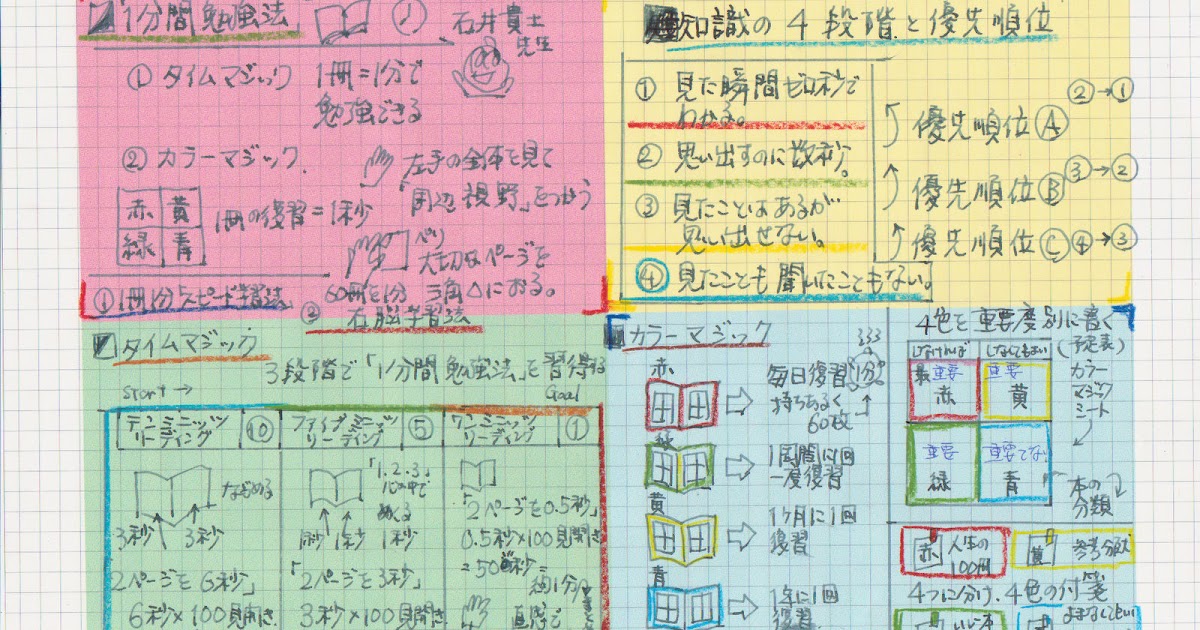 「1分間勉強法」
石井貴士
先生
① タイムマジック
1冊=1分で
勉強できる
② カラーマジック
赤 黄
緑 青
1冊の復習=1秒
左手の全体を見て
「周辺視野」をつかう
ベリ
大切なページを
三角△におる。
①1冊1分スピード学習法
60冊を1分
② 右脳学習法
知識の4段階と優先順位
① 見た瞬間ゼロ秒で
わかる。
② 思い出すのに数秒。
③ 見たことはあるが
思い出せない。
④ 見たことも聞いたこともない。
優先順位Ⓐ ②→①
優先順位Ⓑ ③→②
優先順位Ⓒ ④→③
タイムマジック
3段階で「1分間勉強法」を習得する
Start →
Goal
テンミニッツ
リーディング ⑩
ファイブミニッツ
リーディング ⑤
ワンミニッツ
リーディング ①
ながめる
3秒 3秒
「2ページを6秒」
6秒×100見開き
「1.2.3」
心の中で
めくる
1秒 1秒 1秒
「2ページを3秒」
3秒×100見開き
「2ページを0.5秒」
0.5秒×100見開き
=50秒=
約1分
直感で
カラーマジック
赤
毎日復習 1分
持ちあるく
60枚
緑
1週間に1回
一度復習
黄
1ヶ月に1回
復習
青
1年に1回
復習
4色を重要度別に書く
(予定表)
しなければ しなくてもよい
最重要
赤
重要
黄
重要
緑
重要でない
青
カラー
マジック
シート
本の
分類
赤 人生の
100冊
黄 参考文献
4つに分け、4色の付箋
いい本
よまなくてもいい